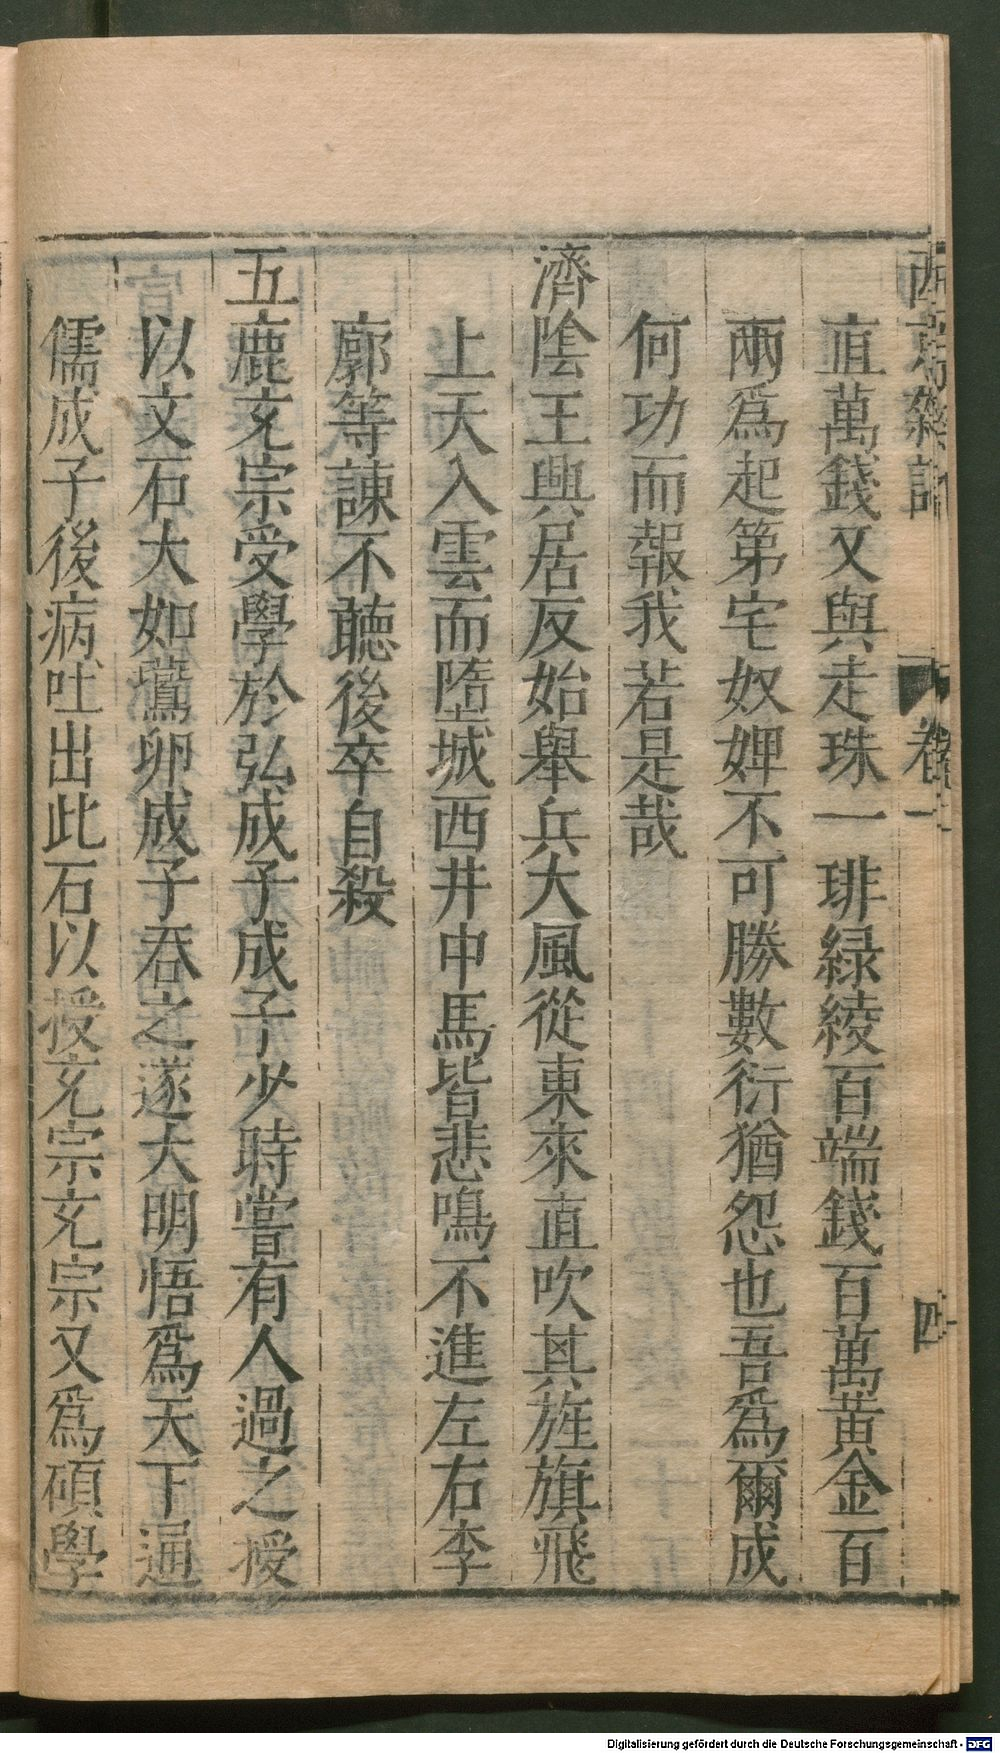 西京雜記 卷一 四
直萬錢又與走珠一琲緑綾百端錢百萬黃金百
兩爲起第宅奴婢不可勝數衍猶怨也吾爲爾成
何功而報我若是哉
濟陰王興居反始舉兵大風從東來直吹其旌旗飛
上天入雲而墮城西井中馬皆悲鳴不進左右李
廓等諫不聽後卒自殺
五鹿充宗受學於弘成子成子少時嘗有人過之授
以文石大如鷰卵成子吞之遂大明悟爲天下通
儒成子後病吐出此石以授充宗充宗又爲碩學
Digitalisierung gefördert durch die Deutsche Forschungsgemeinschaft - DFG